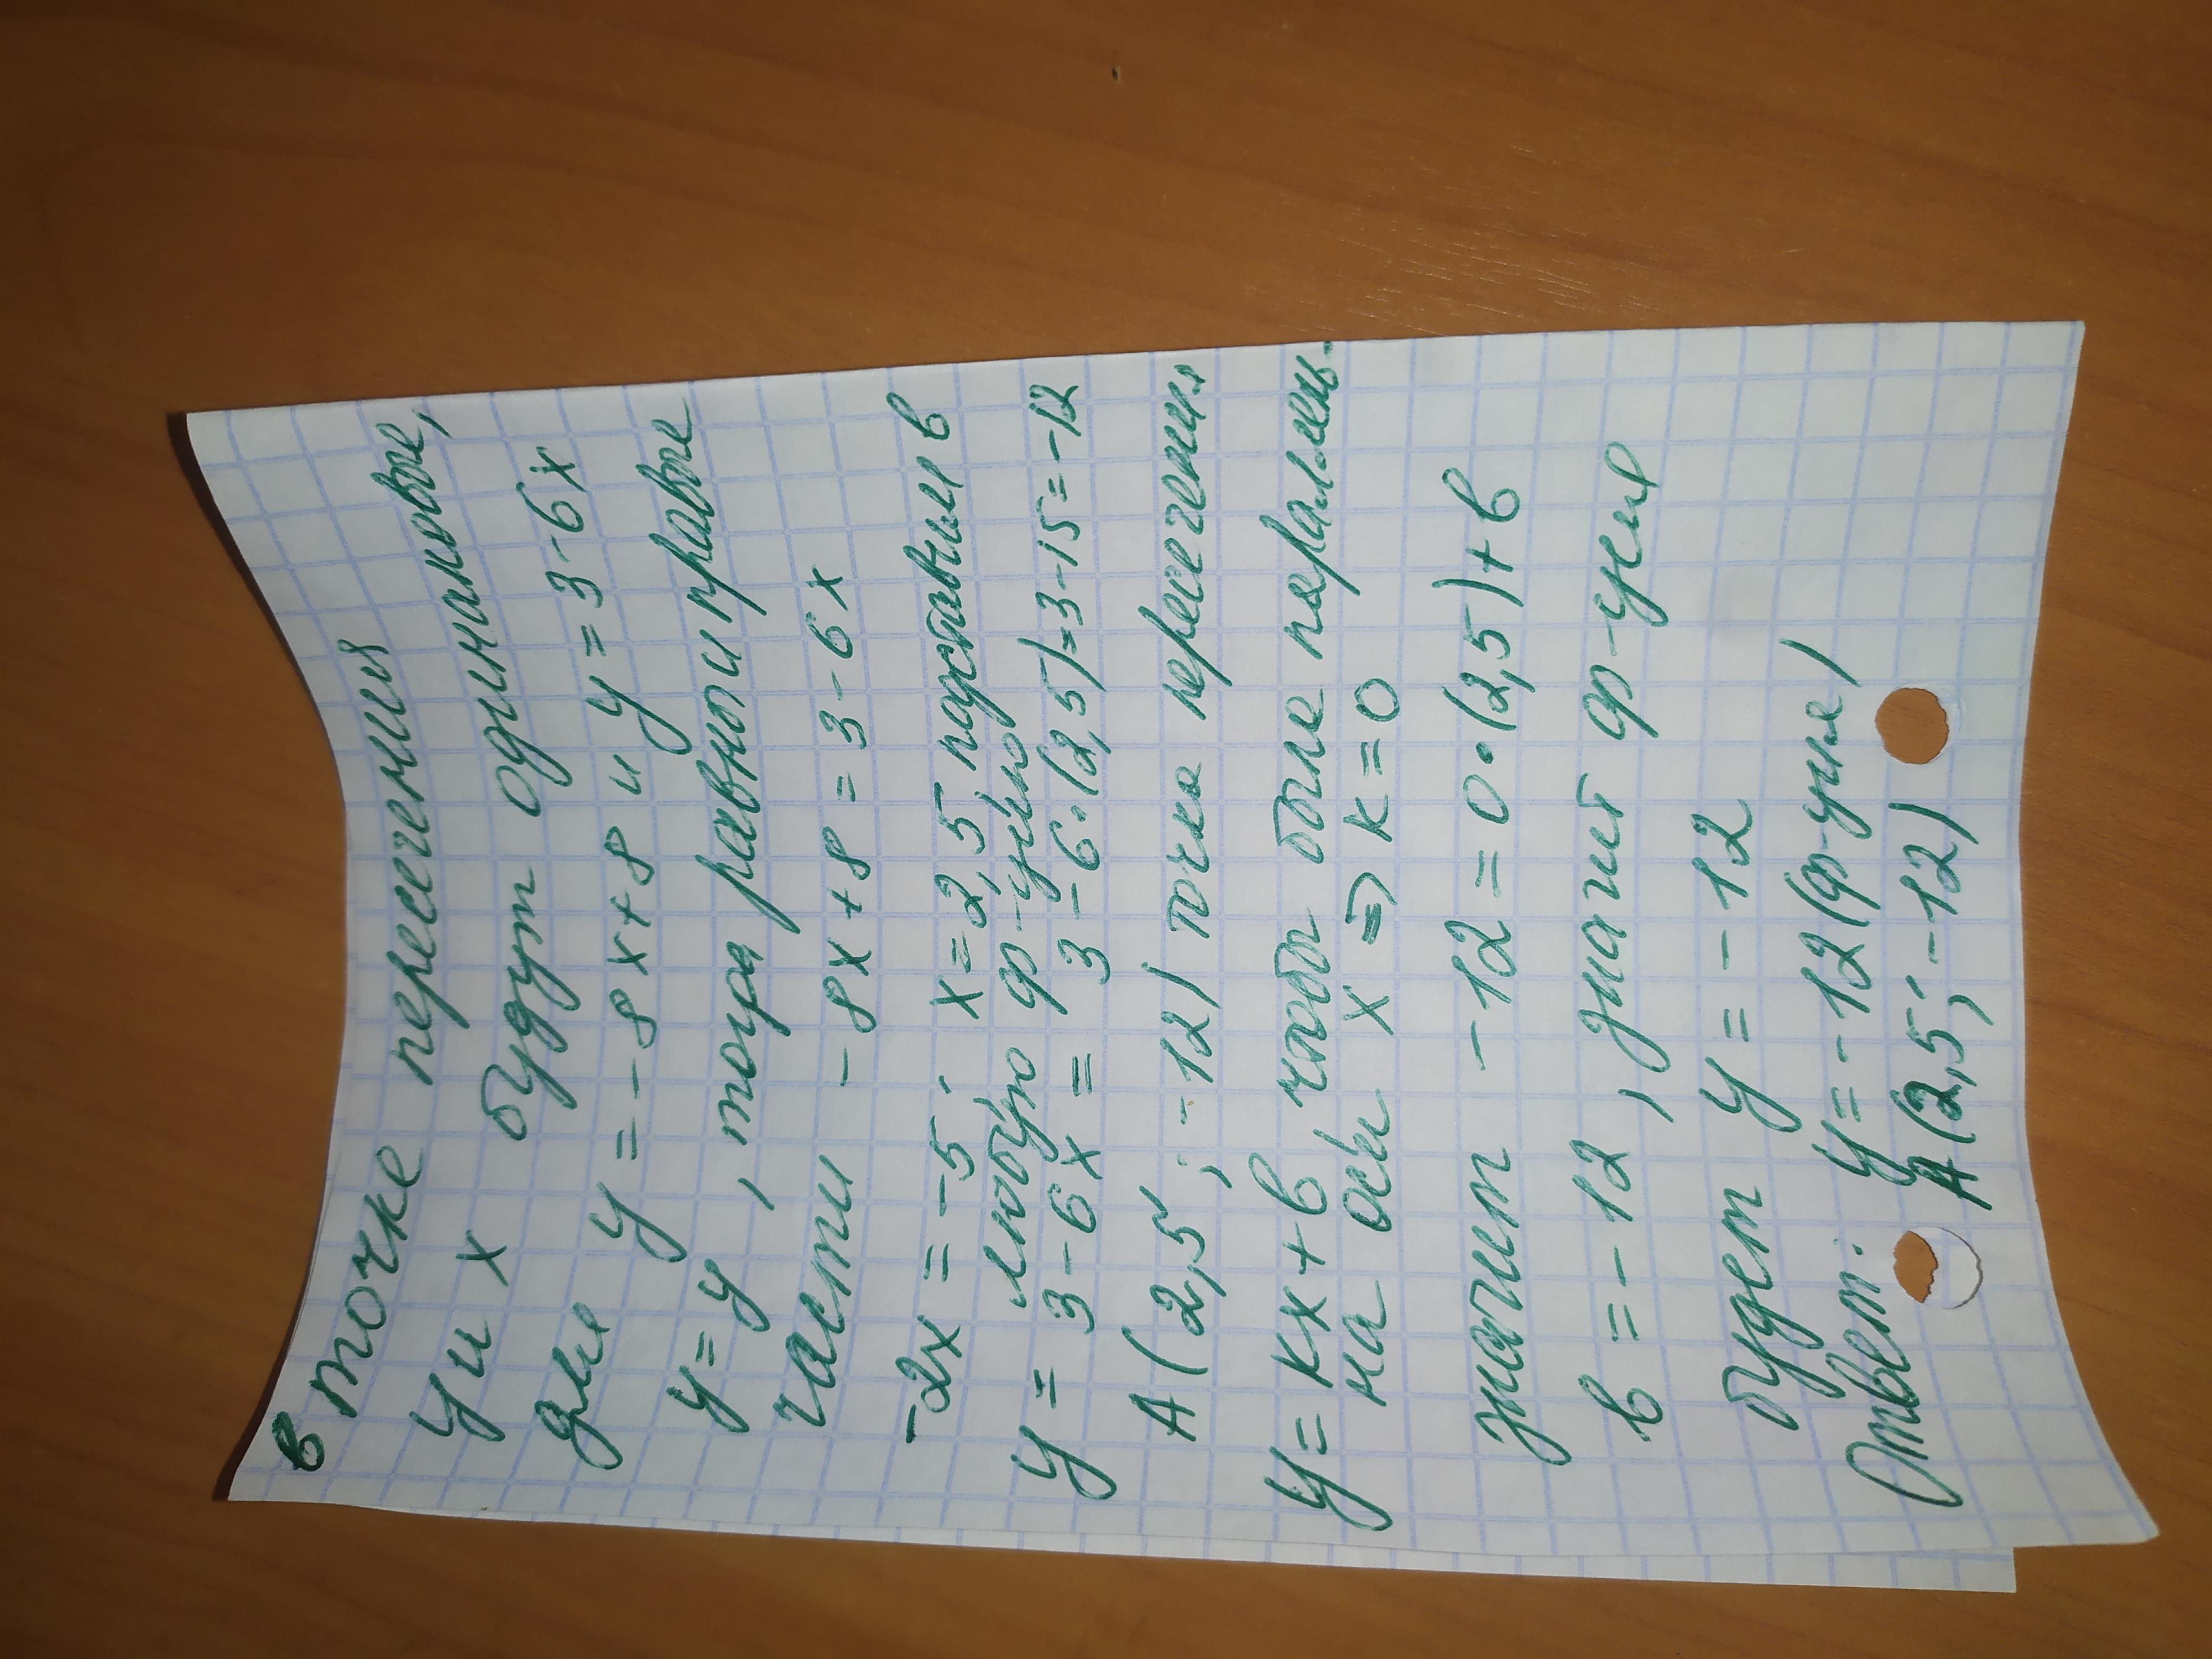 в точке пересечения
у и х будут одинаковые,
для у = -8х+8 и у = 3-6х
у=у, тогда равны и правые
части -8х+8 = 3-6х
-2х = -5; х=2,5 подставим в
любую ф-цию
у = 3-6х = 3-6·(2,5)=3-15=-12
А(2,5; -12) точка пересечения
у=кх+в чтобы была параллельн.
на оси х ⇒ к=0
значит -12=0·(2,5)+в
в=-12, значит ф-ция
будет у=-12
Ответ: у=-12(ф-ция)
А(2,5; -12)